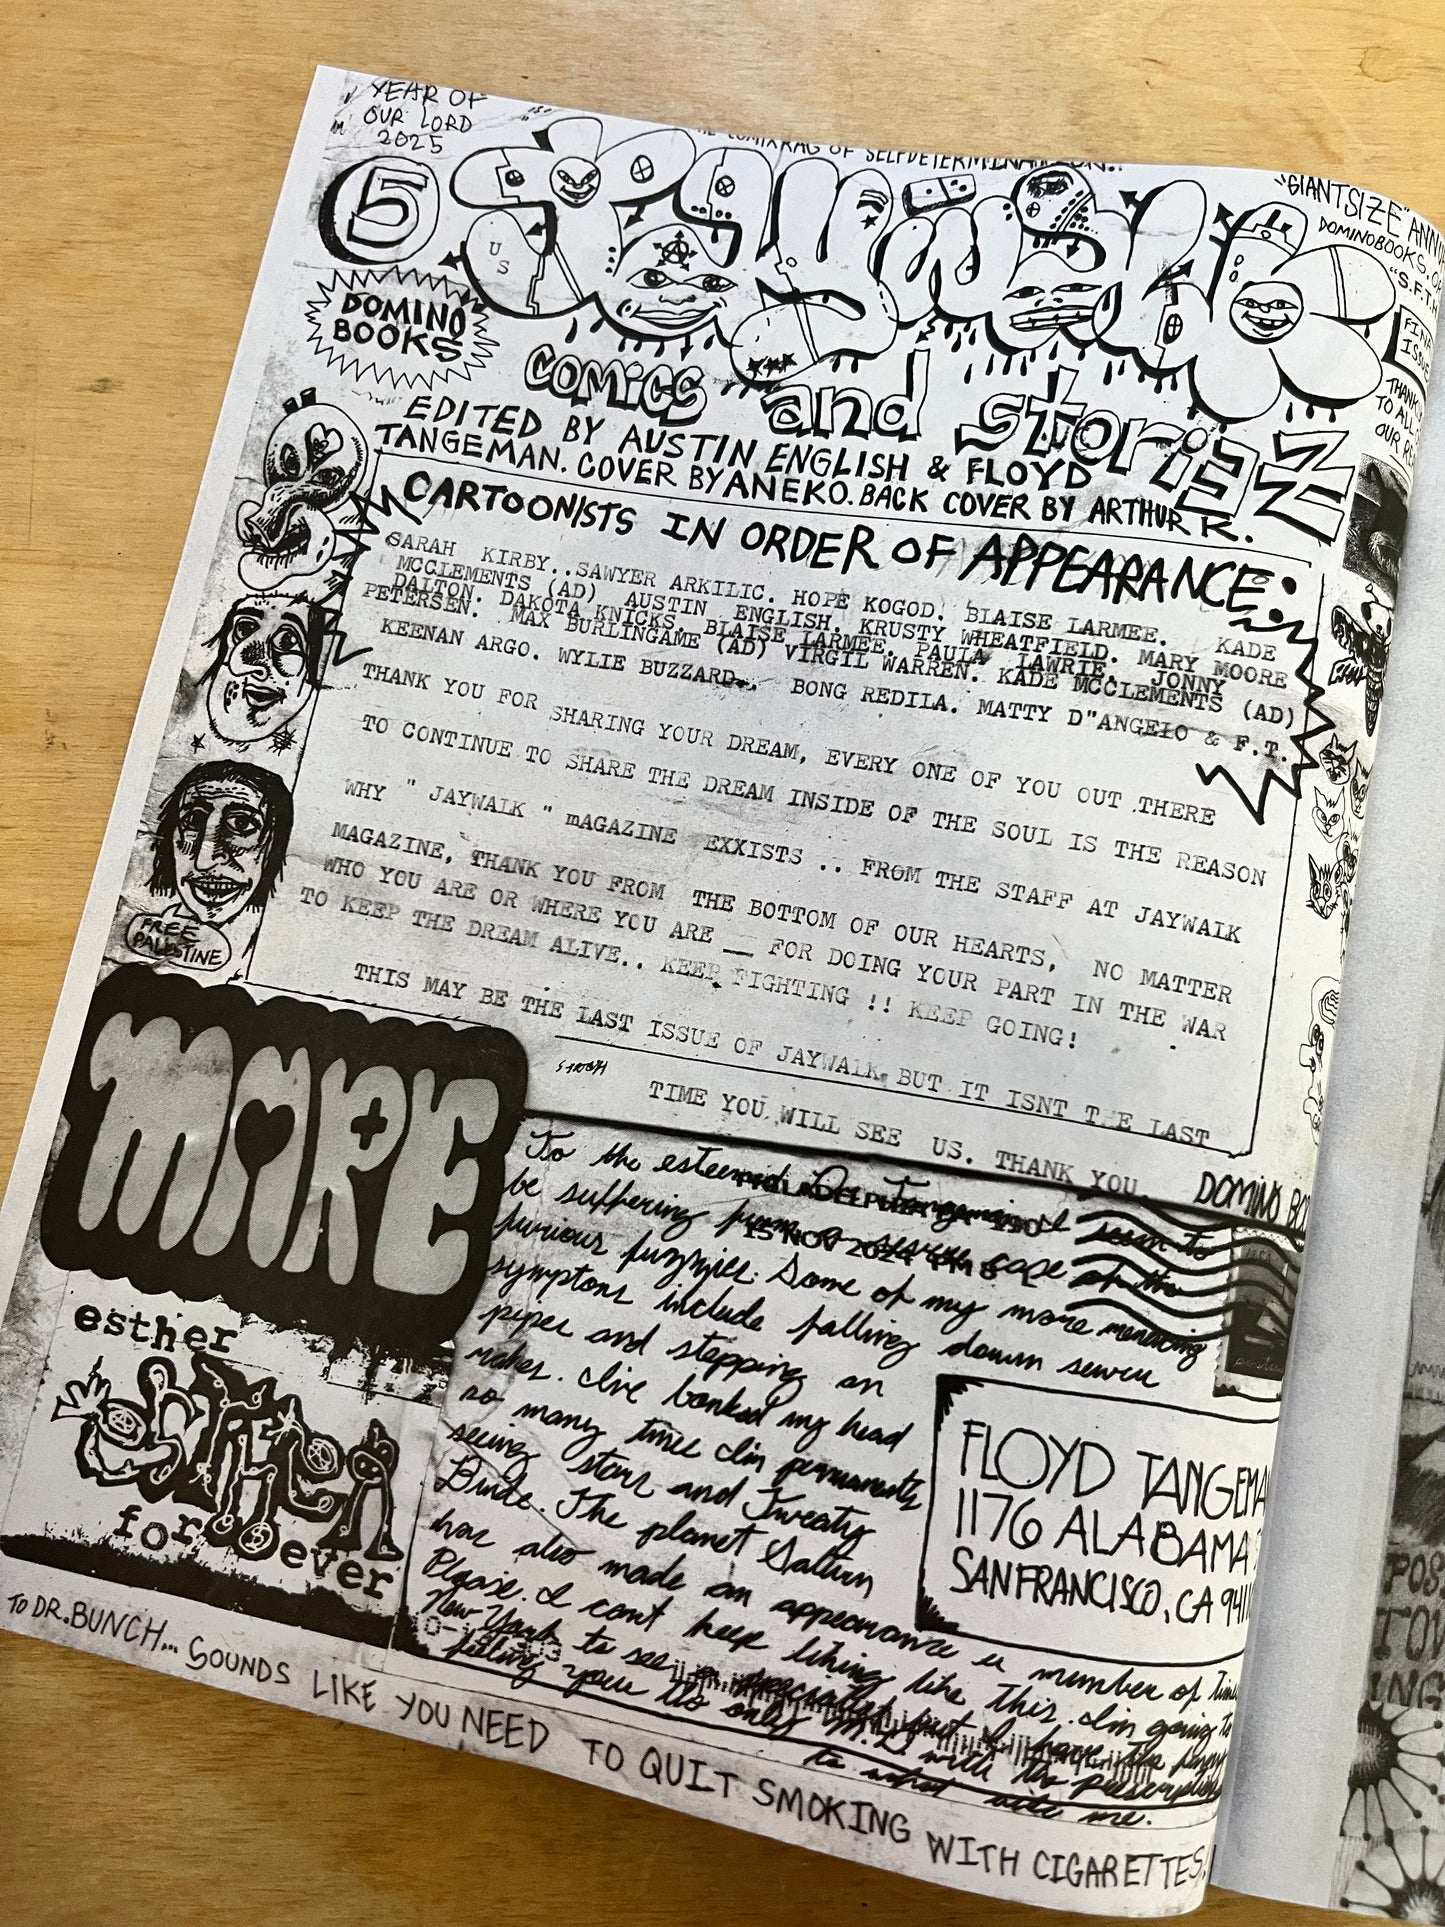 YEAR OF
OUR LORD
2025
COMIXRAG OF SELFDETERMINATION..
"GIANTSIZE"
DOMINOBOOKS.
5
JAYWALK
US
DOMINO
BOOKS
COMICS and storiez
EDITED BY AUSTIN ENGLISH & FLOYD
TANGEMAN. COVER BY ANEKO. BACK COVER BY ARTHUR K.
THANK
TO ALL
OUR RE
CARTOONISTS IN ORDER OF APPEARANCE:
SARAH KIRBY..SAWYER ARKILIC. HOPE KOGOD. BLAISE LARMEE. KADE
MCCLEMENTS (AD) AUSTIN ENGLISH. KRUSTY WHEATFIELD. MARY MOORE
DALTON. DAKOTA KNICKS. BLAISE LARMEE. PAULA LAWRIE. JONNY
PETERSEN. MAX BURLINGAME (AD) VIRGIL WARREN. KADE MCCLEMENTS (AD)
KEENAN ARGO. WYLIE BUZZARD.. BONG REDILA. MATTY D"ANGELO & F.T.
THANK YOU FOR SHARING YOUR DREAM, EVERY ONE OF YOU OUT THERE
TO CONTINUE TO SHARE THE DREAM INSIDE OF THE SOUL IS THE REASON
WHY " JAYWALK " mAGAZINE EXXISTS .. FROM THE STAFF AT JAYWALK
MAGAZINE, THANK YOU FROM THE BOTTOM OF OUR HEARTS, NO MATTER
WHO YOU ARE OR WHERE YOU ARE — FOR DOING YOUR PART IN THE WAR
TO KEEP THE DREAM ALIVE.. KEEP FIGHTING !! KEEP GOING!
THIS MAY BE THE LAST ISSUE OF JAYWALK BUT IT ISNT THE LAST
TIME YOU WILL SEE US. THANK YOU.
FREE
PALESTINE
DOMINO
MORE
esther
for ever
To the esteemed Dr. Tangeman I seem to
be suffering from a severe case of the
furious fuzzies. Some of my more menacing
symptoms include falling down sewer
pipes and stepping on
rakes. Ive bonked my head
so many times Im permanently
seeing stars and Tweaty
Birds. The planet Saturn
has also made an appearance a number of
Please. I cant keep living like this. Im going to
New York to see a specialist but I have the
feeling you the only M.D. with the
to what ails me.
15 NOV 2024
FLOYD TANGEMA
1176 ALABAMA
SAN FRANCISCO, CA 9411
TO DR. BUNCH... SOUNDS LIKE YOU NEED TO QUIT SMOKING WITH CIGARETTES!